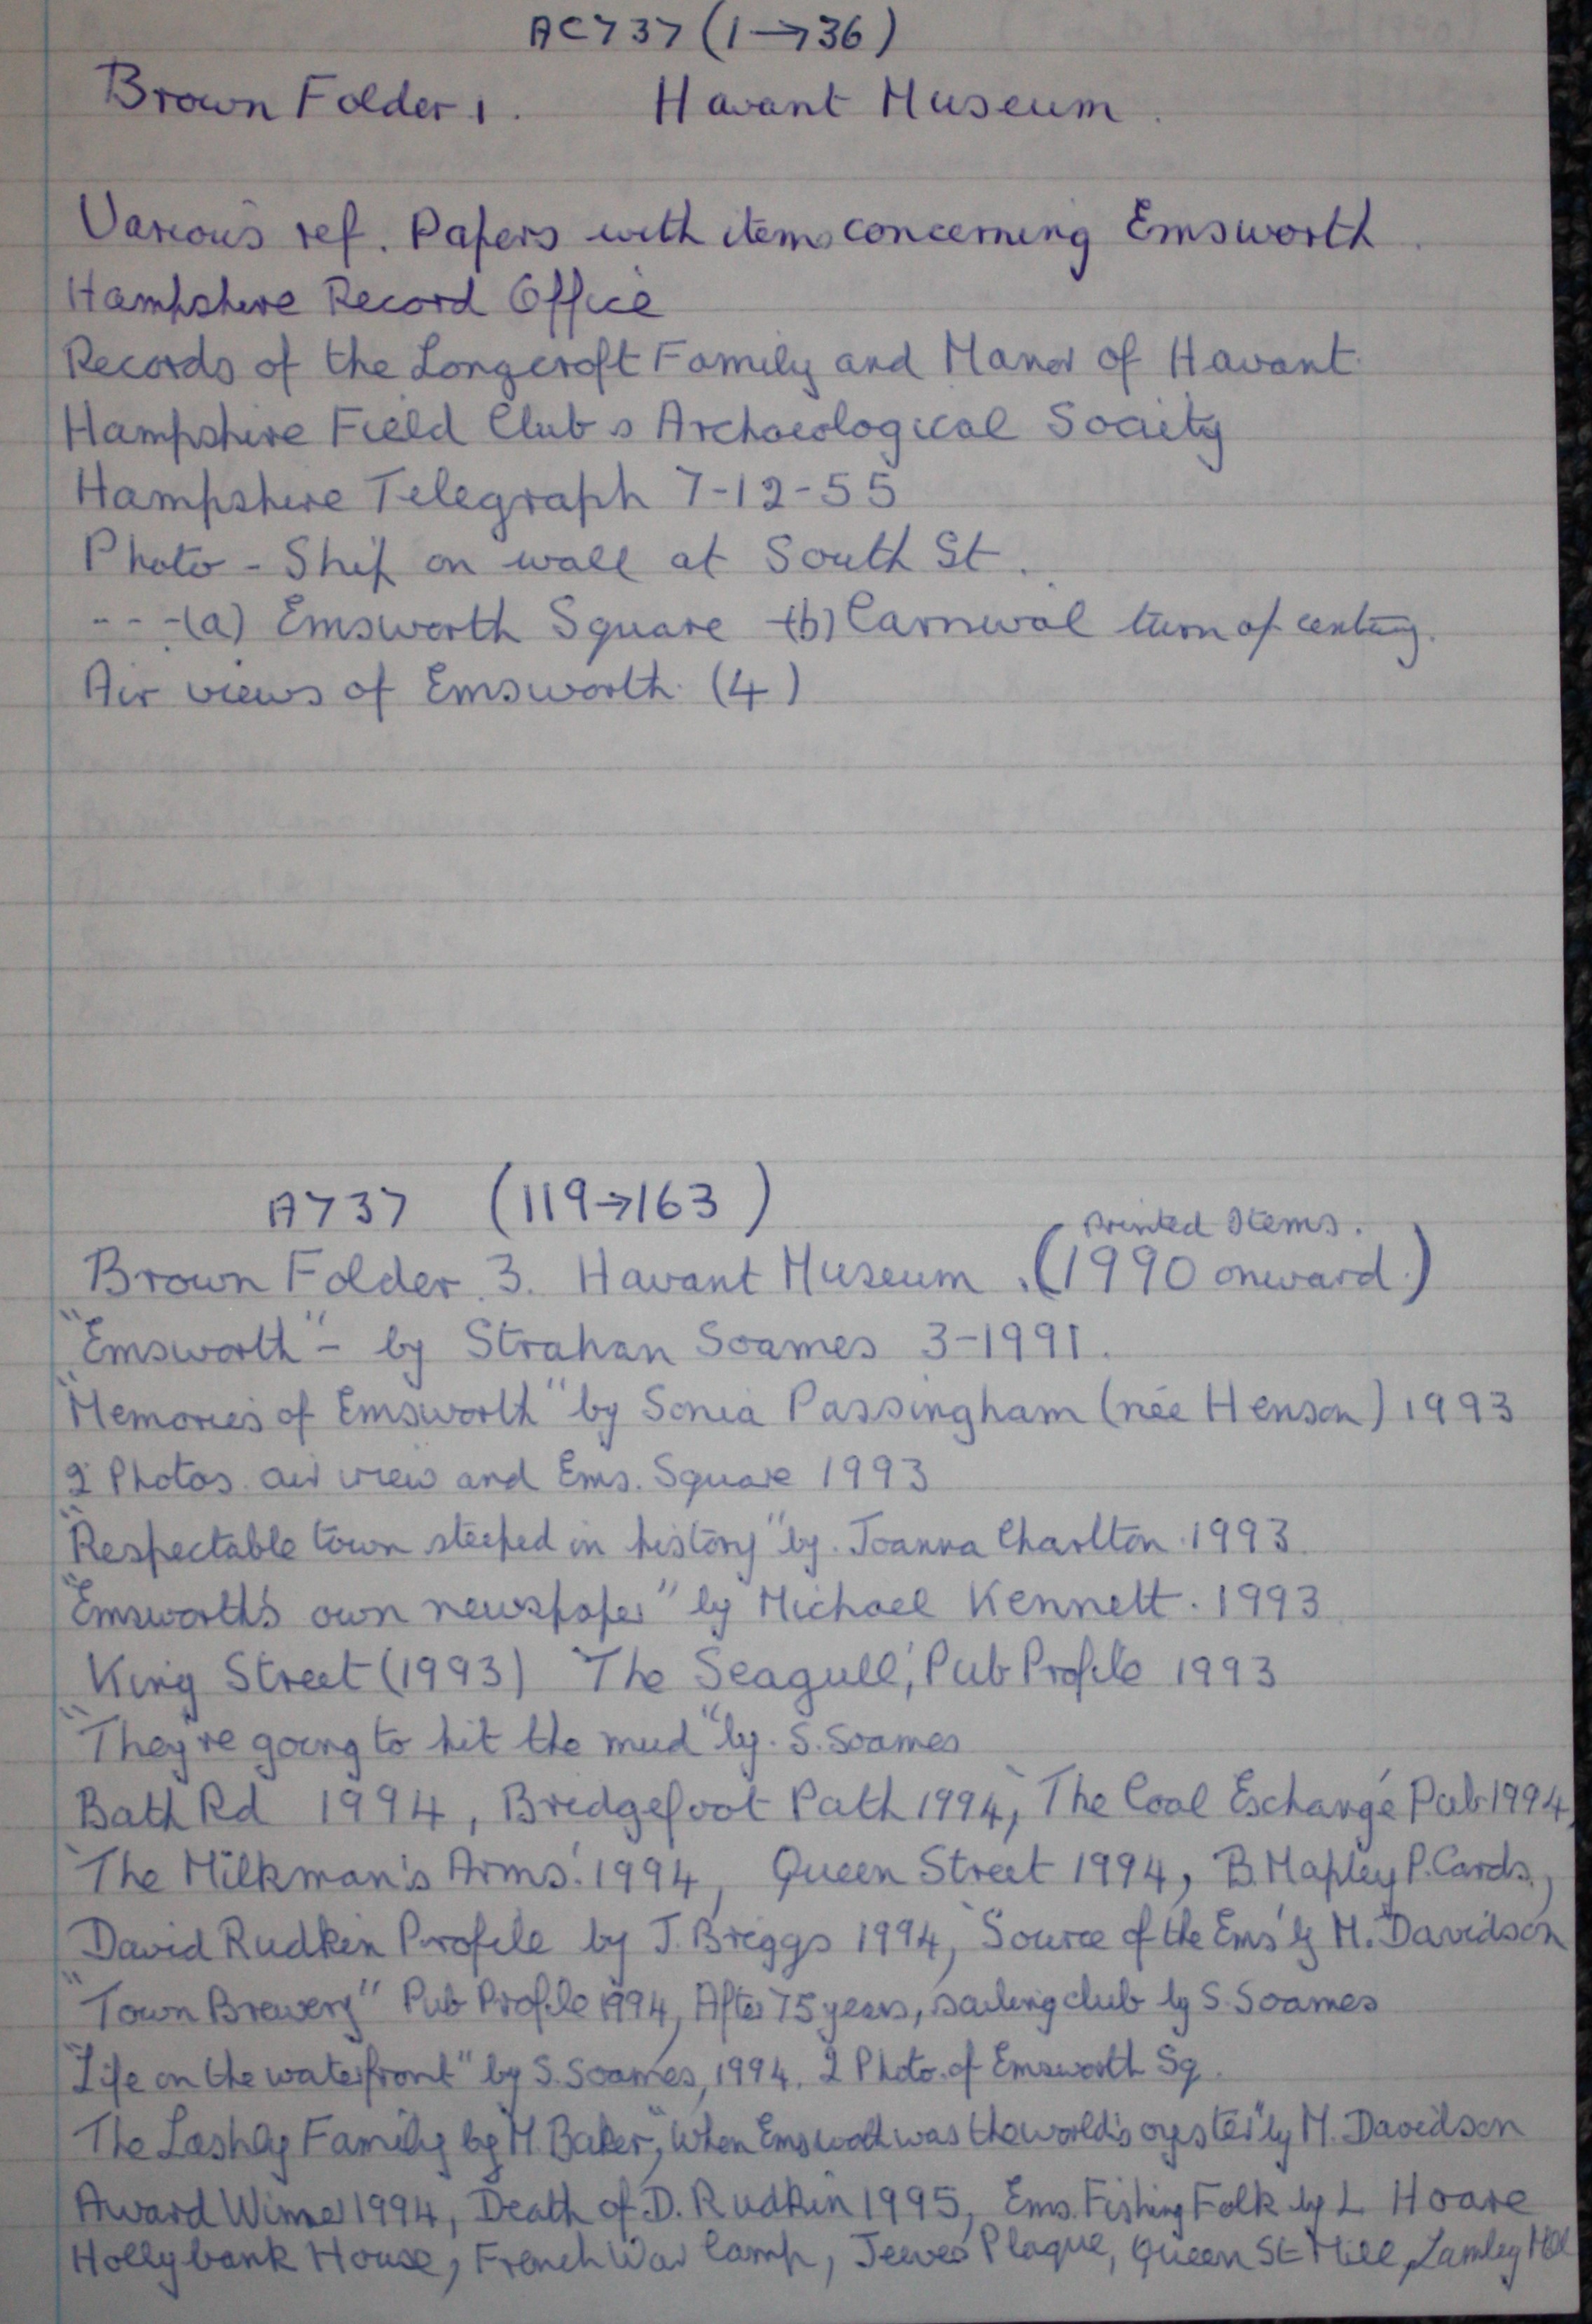 AC737 (1→36)
Brown Folder 1. Havant Museum.
Various ref. Papers with items concerning Emsworth.
Hampshire Record Office
Records of the Longcroft Family and Manor of Havant.
Hampshire Field Club & Archaeological Society
Hampshire Telegraph 7-12-55
Photo - Ship on wall at South St.
---(a) Emsworth Square -(b) Carnival turn of century.
Air views of Emsworth. (4)
A737 (119→163)
Printed Items.
Brown Folder. 3. Havant Museum. (1990 onward.)
"Emsworth" - by Strahan Soames 3-1991.
"Memories of Emsworth" by Sonia Passingham (née Henson) 1993
2 Photos. air view and Ems. Square 1993
"Respectable town steeped in history" by. Joanna Charlton. 1993.
"Emsworth's own newspaper" by Michael Kennett. 1993
King Street (1993) 'The Seagull', Pub Profile 1993
"They're going to hit the mud" by. S. Soames
Bath Rd 1994, Bridgefoot Path 1994, 'The Coal Exchange' Pub 1994,
'The Milkman's Arms'. 1994, Queen Street 1994, B. Mapley P. Cards,
David Rudkin Profile by J. Briggs 1994, 'Source of the Ems' by M. Davidson
"Town Brewery" Pub Profile 1994, After 75 years, sailing club by S. Soames
"Life on the waterfront" by S. Soames, 1994. 2 Photo. of Emsworth Sq.
The Lashly Family by M. Baker, "When Emsworth was the world's oyster" by M. Davidson
Award Winner 1994, Death of D. Rudkin 1995, Ems. Fishing Folk by L Hoare
Hollybank House, French War Camp, Jeeves Plaque, Queen St Mill, Lumley Mill